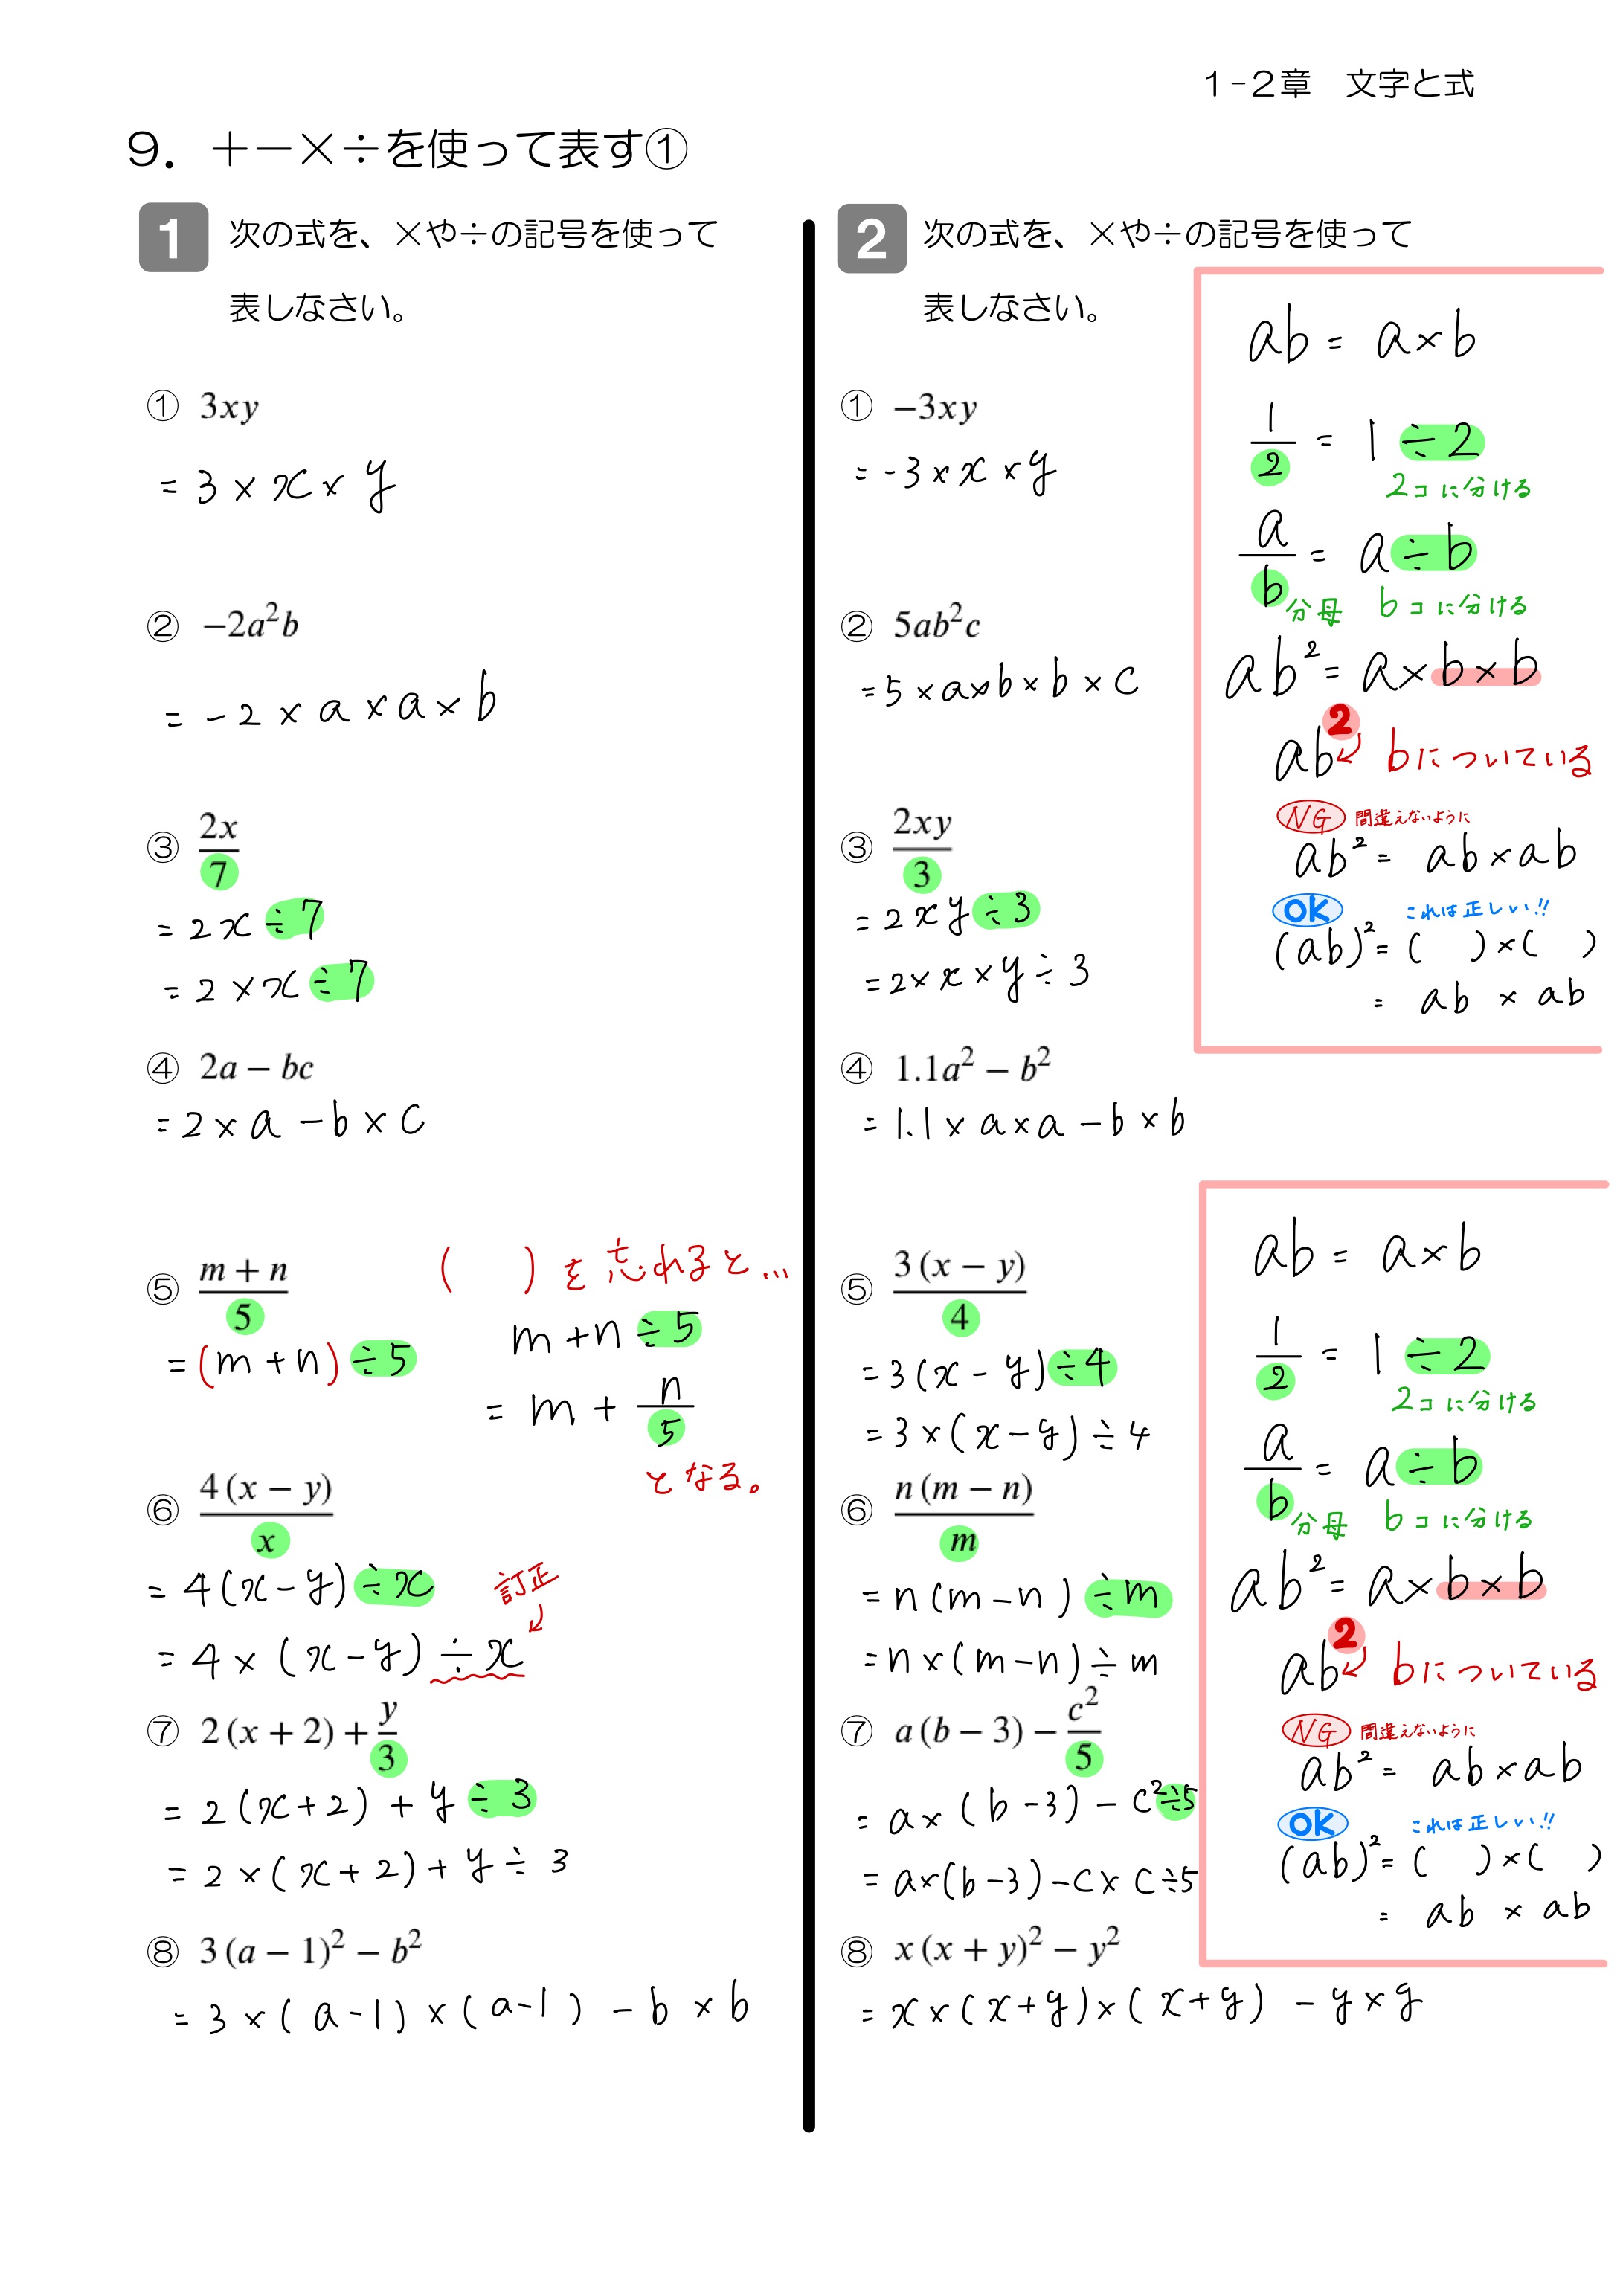 1-2章 文字と式
9. ＋－×÷を使って表す①
1 次の式を、×や÷の記号を使って
表しなさい。
① 3xy
= 3 × x × y
② −2a²b
= −2 × a × a × b
③ 2x/7
= 2x ÷ 7
= 2 × x ÷ 7
④ 2a − bc
= 2 × a − b × c
⑤ (m + n)/5
= (m + n) ÷ 5
( )を忘れると…
m + n ÷ 5
= m + n/5
となる。
⑥ 4(x − y)/x
= 4(x − y) ÷ x
訂正
= 4 × (x − y) ÷ x
⑦ 2(x + 2) + y/3
= 2(x + 2) + y ÷ 3
= 2 × (x + 2) + y ÷ 3
⑧ 3(a − 1)² − b²
= 3 × (a − 1) × (a − 1) − b × b
2 次の式を、×や÷の記号を使って
表しなさい。
① −3xy
= −3 × x × y
② 5ab²c
= 5 × a × b × b × c
③ 2xy/3
= 2xy ÷ 3
= 2 × x × y ÷ 3
④ 1.1a² − b²
= 1.1 × a × a − b × b
⑤ 3(x − y)/4
= 3(x − y) ÷ 4
= 3 × (x − y) ÷ 4
⑥ n(m − n)/m
= n(m − n) ÷ m
= n × (m − n) ÷ m
⑦ a(b − 3) − c²/5
= a × (b − 3) − c² ÷ 5
= a × (b − 3) − c × c ÷ 5
⑧ x(x + y)² − y²
= x × (x + y) × (x + y) − y × y
ab = a × b
1/2 = 1 ÷ 2
2コに分ける
a/b = a ÷ b
分母 bコに分ける
ab² = a × b × b
ab² bについている
NG 間違えないように
ab² = ab × ab
OK これは正しい!!
(ab)² = ( ) × ( )
= ab × ab
ab = a × b
1/2 = 1 ÷ 2
2コに分ける
a/b = a ÷ b
分母 bコに分ける
ab² = a × b × b
ab² bについている
NG 間違えないように
ab² = ab × ab
OK これは正しい!!
(ab)² = ( ) × ( )
= ab × ab